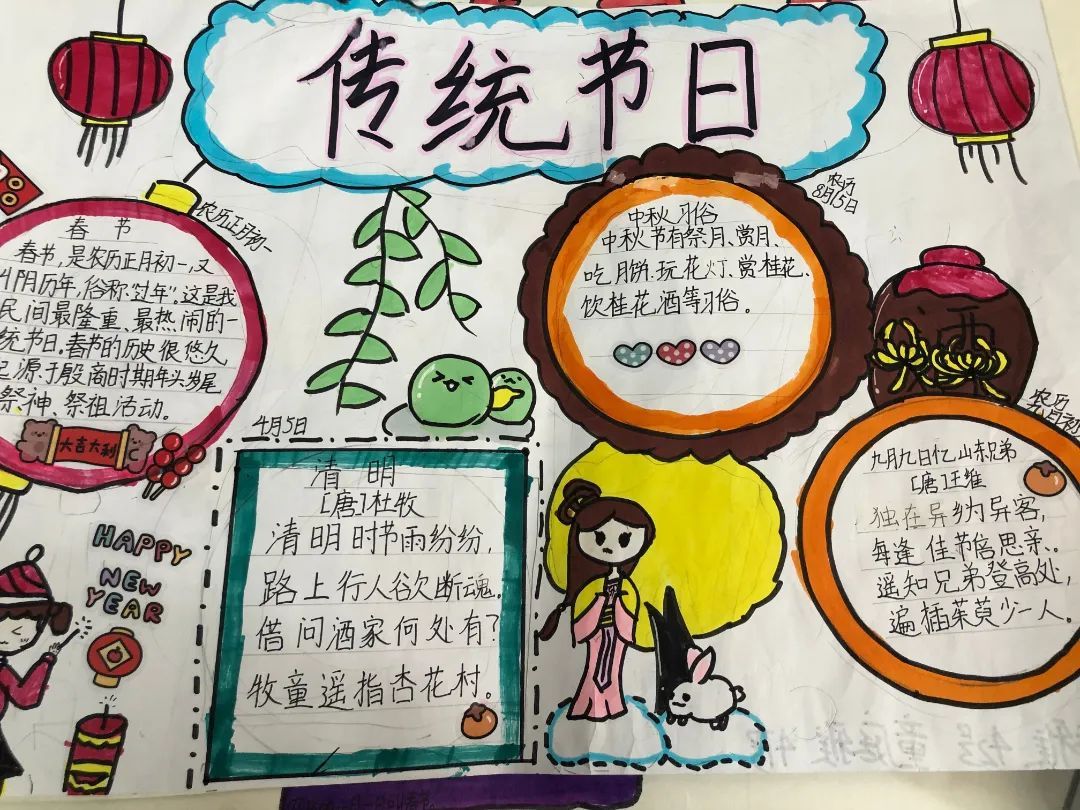 传统节日
农历正月初一
春节
春节,是农历正月初一,又
叫阴历年,俗称“过年”。这是我
民间最隆重、最热闹的一
统节日。春节的历史很悠久
起源于殷商时期年头岁尾
祭神、祭祖活动。
大吉大利
HAPPY
NEW
YEAR
4月5日
清明
[唐]杜牧
清明时节雨纷纷,
路上行人欲断魂。
借问酒家何处有?
牧童遥指杏花村。
农历
8月15日
中秋习俗
中秋节有祭月、赏月、
吃月饼、玩花灯、赏桂花、
饮桂花酒等习俗。
酒
农历
九月初
九月九日忆山东兄弟
[唐]王维
独在异乡为异客,
每逢佳节倍思亲、。
遥知兄弟登高处,
遍插茱萸少一人。